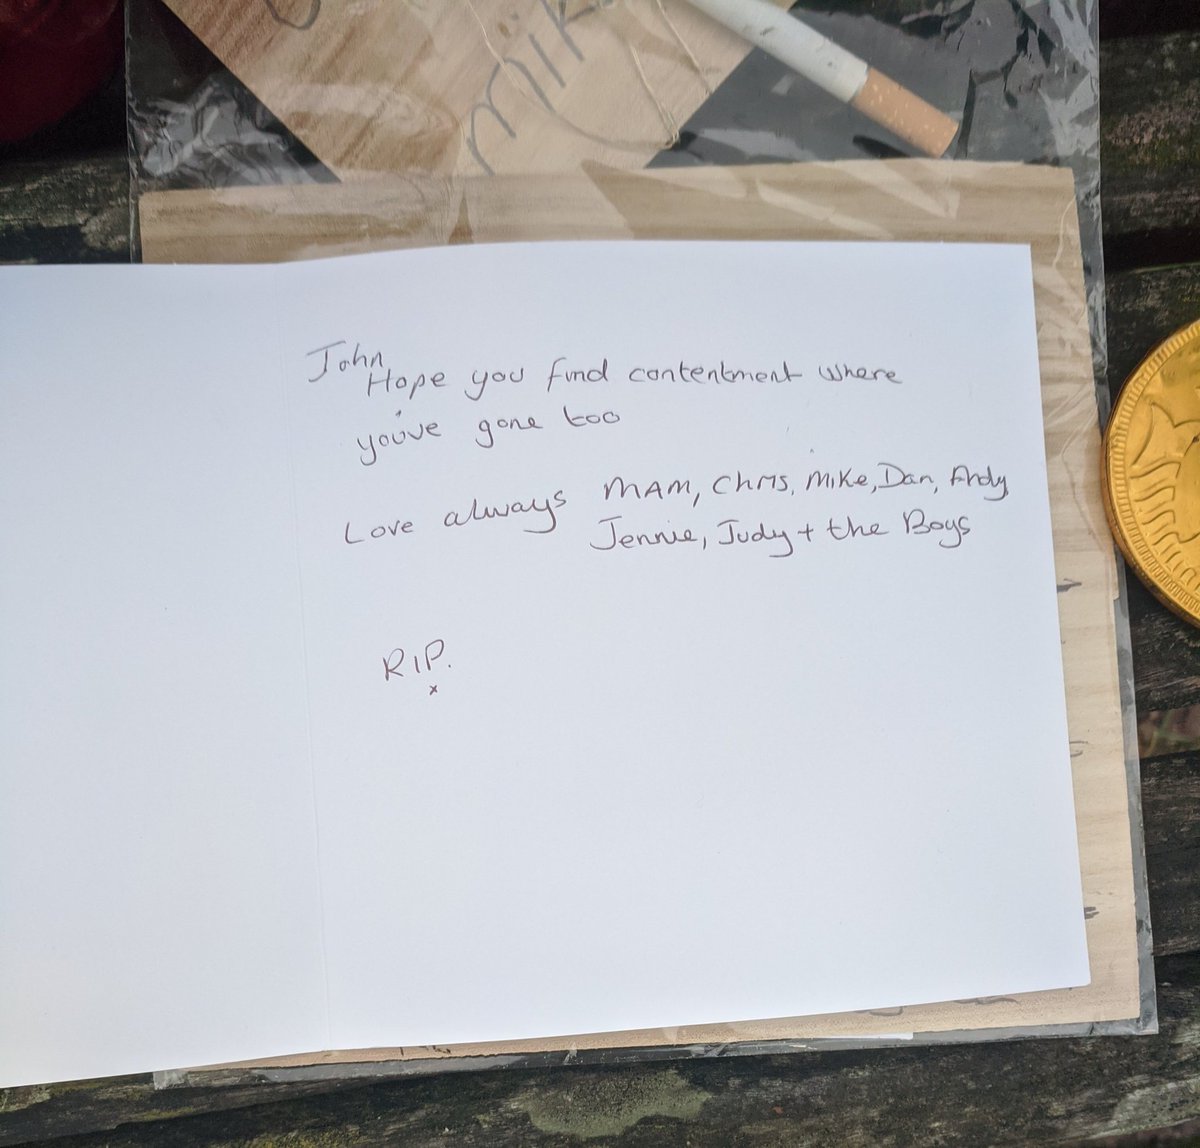 Mike
John
Hope you find contentment where
you've gone too
Love always MAM, Chris, Mike, Dan, Andy
Jennie, Judy + the Boys
RIP.
x